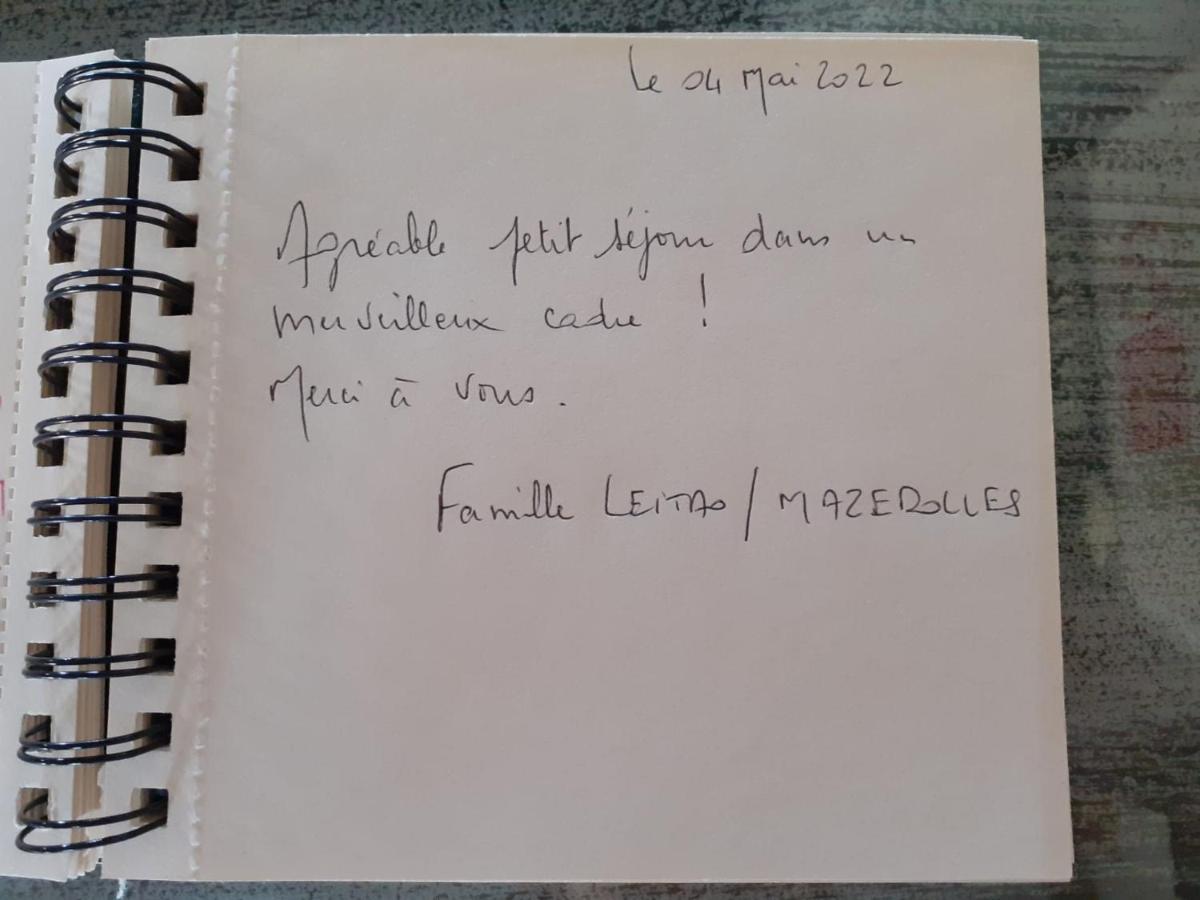 Le 04 Mai 2022
Agréable petit séjour dans un
merveilleux cadre !
Merci à vous.
Famille LEITAO / MAZEROLLES